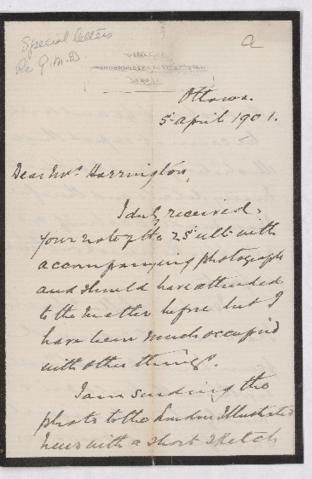 Special letters
Re G.M.D
a
Ottawa.
5 April 1901.
Dear Mrs Harrington,
I duly received
your note of the 25 ult with
accompanying photograph
and should have attended
to the matter before but I
have been much occupied
with other things.
I am sending the
photo to the London Illustrated
News with a short sketch